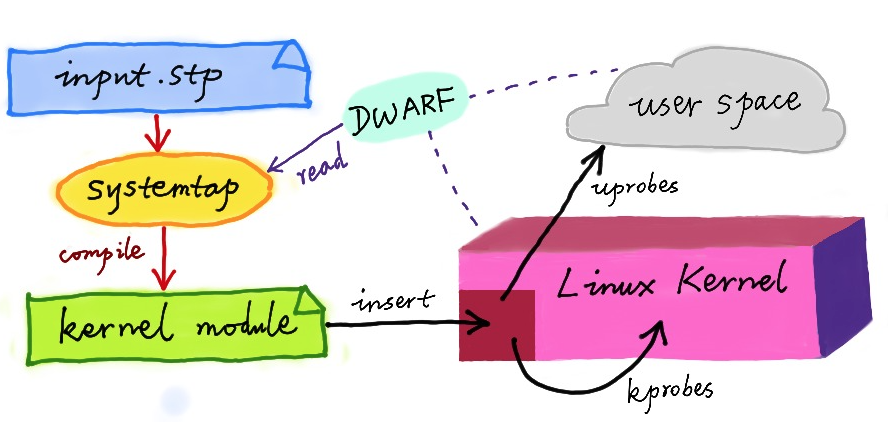 input.stp
DWARF
user space
read
systemtap
uprobes
compile
Linux Kernel
insert
kernel module
kprobes